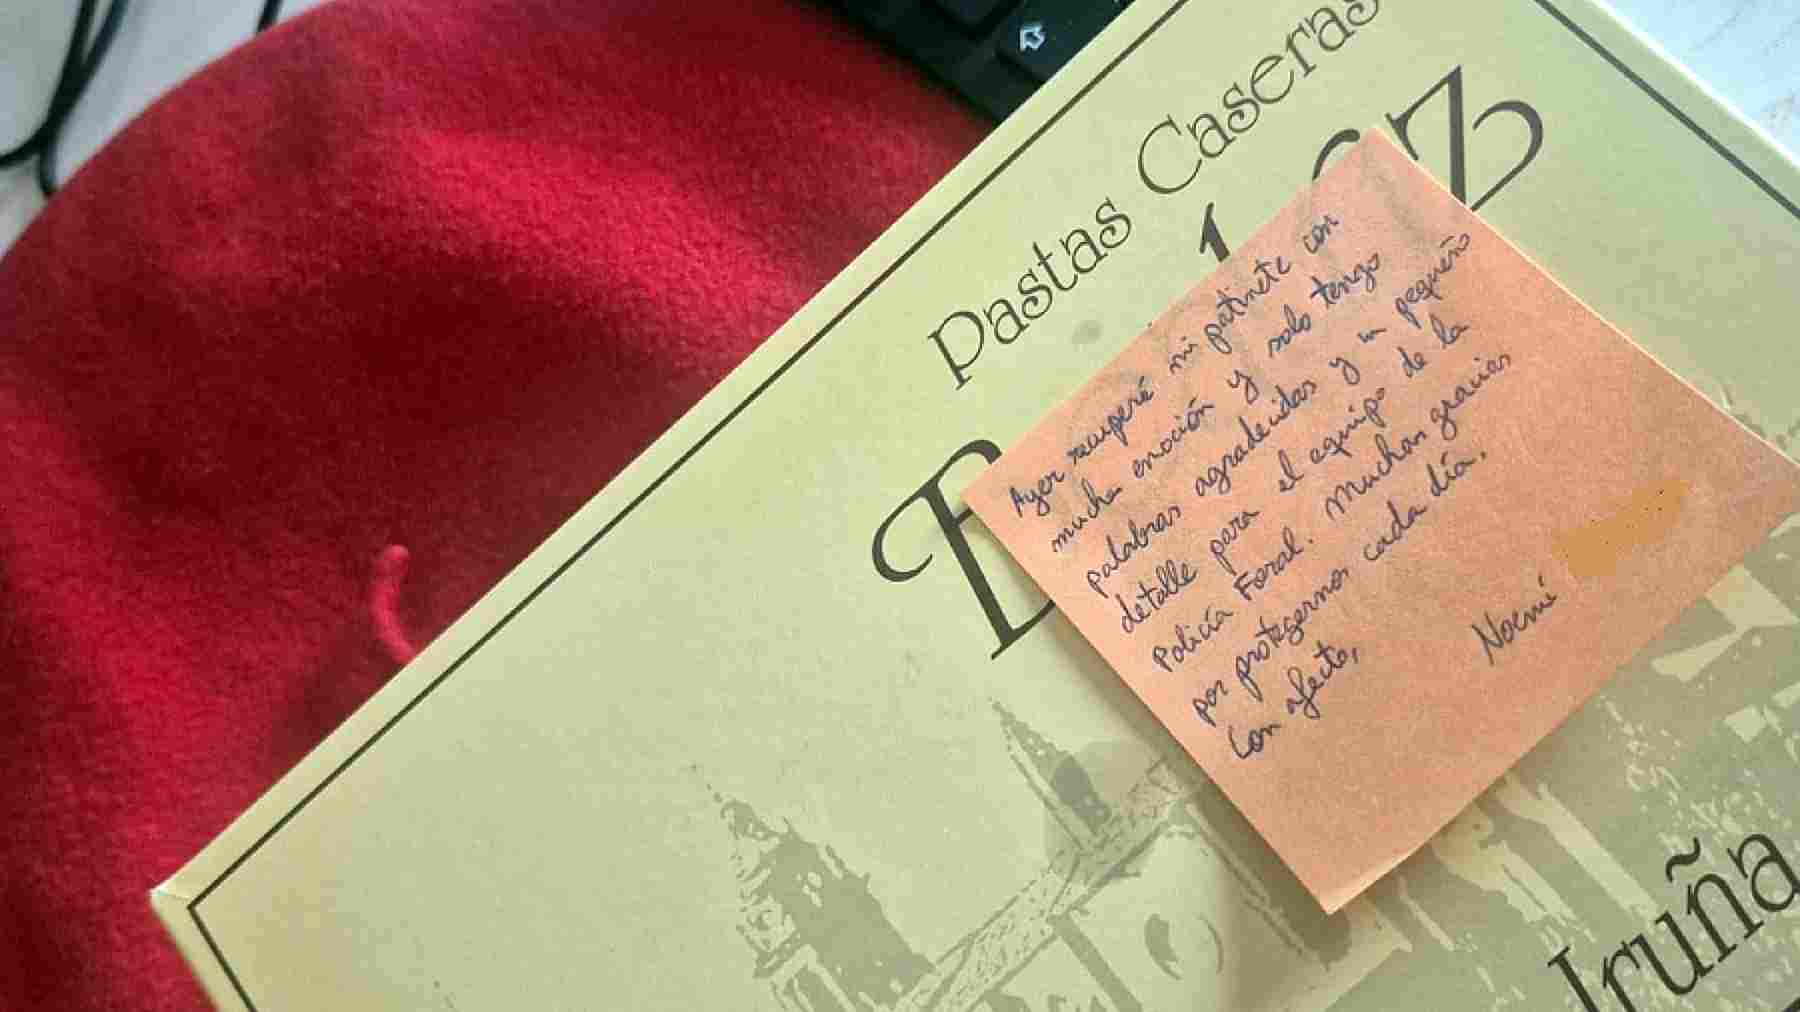 Pastas Caseras
Ayer recuperé mi patinete con
mucha emoción y solo tengo
palabras agradecidas y un pequeño
detalle para el equipo de la
Policía Foral. Muchas gracias
por protegernos cada día.
Con afecto,
Noemí
Iruña